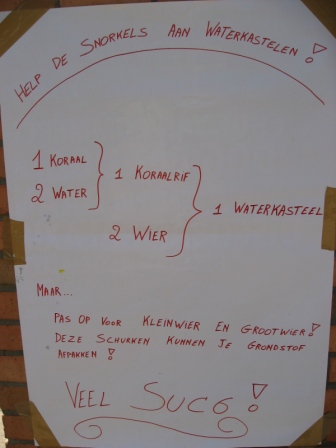 HELP DE SNORKELS AAN WATERKASTELEN!
1 KORAAL
2 WATER
1 KORAALRIF
2 WIER
1 WATERKASTEEL
MAAR...
PAS OP VOOR KLEINWIER EN GROOTWIER!
DEZE SCHURKEN KUNNEN JE GRONDSTOF
AFPAKKEN!
VEEL SUCG!